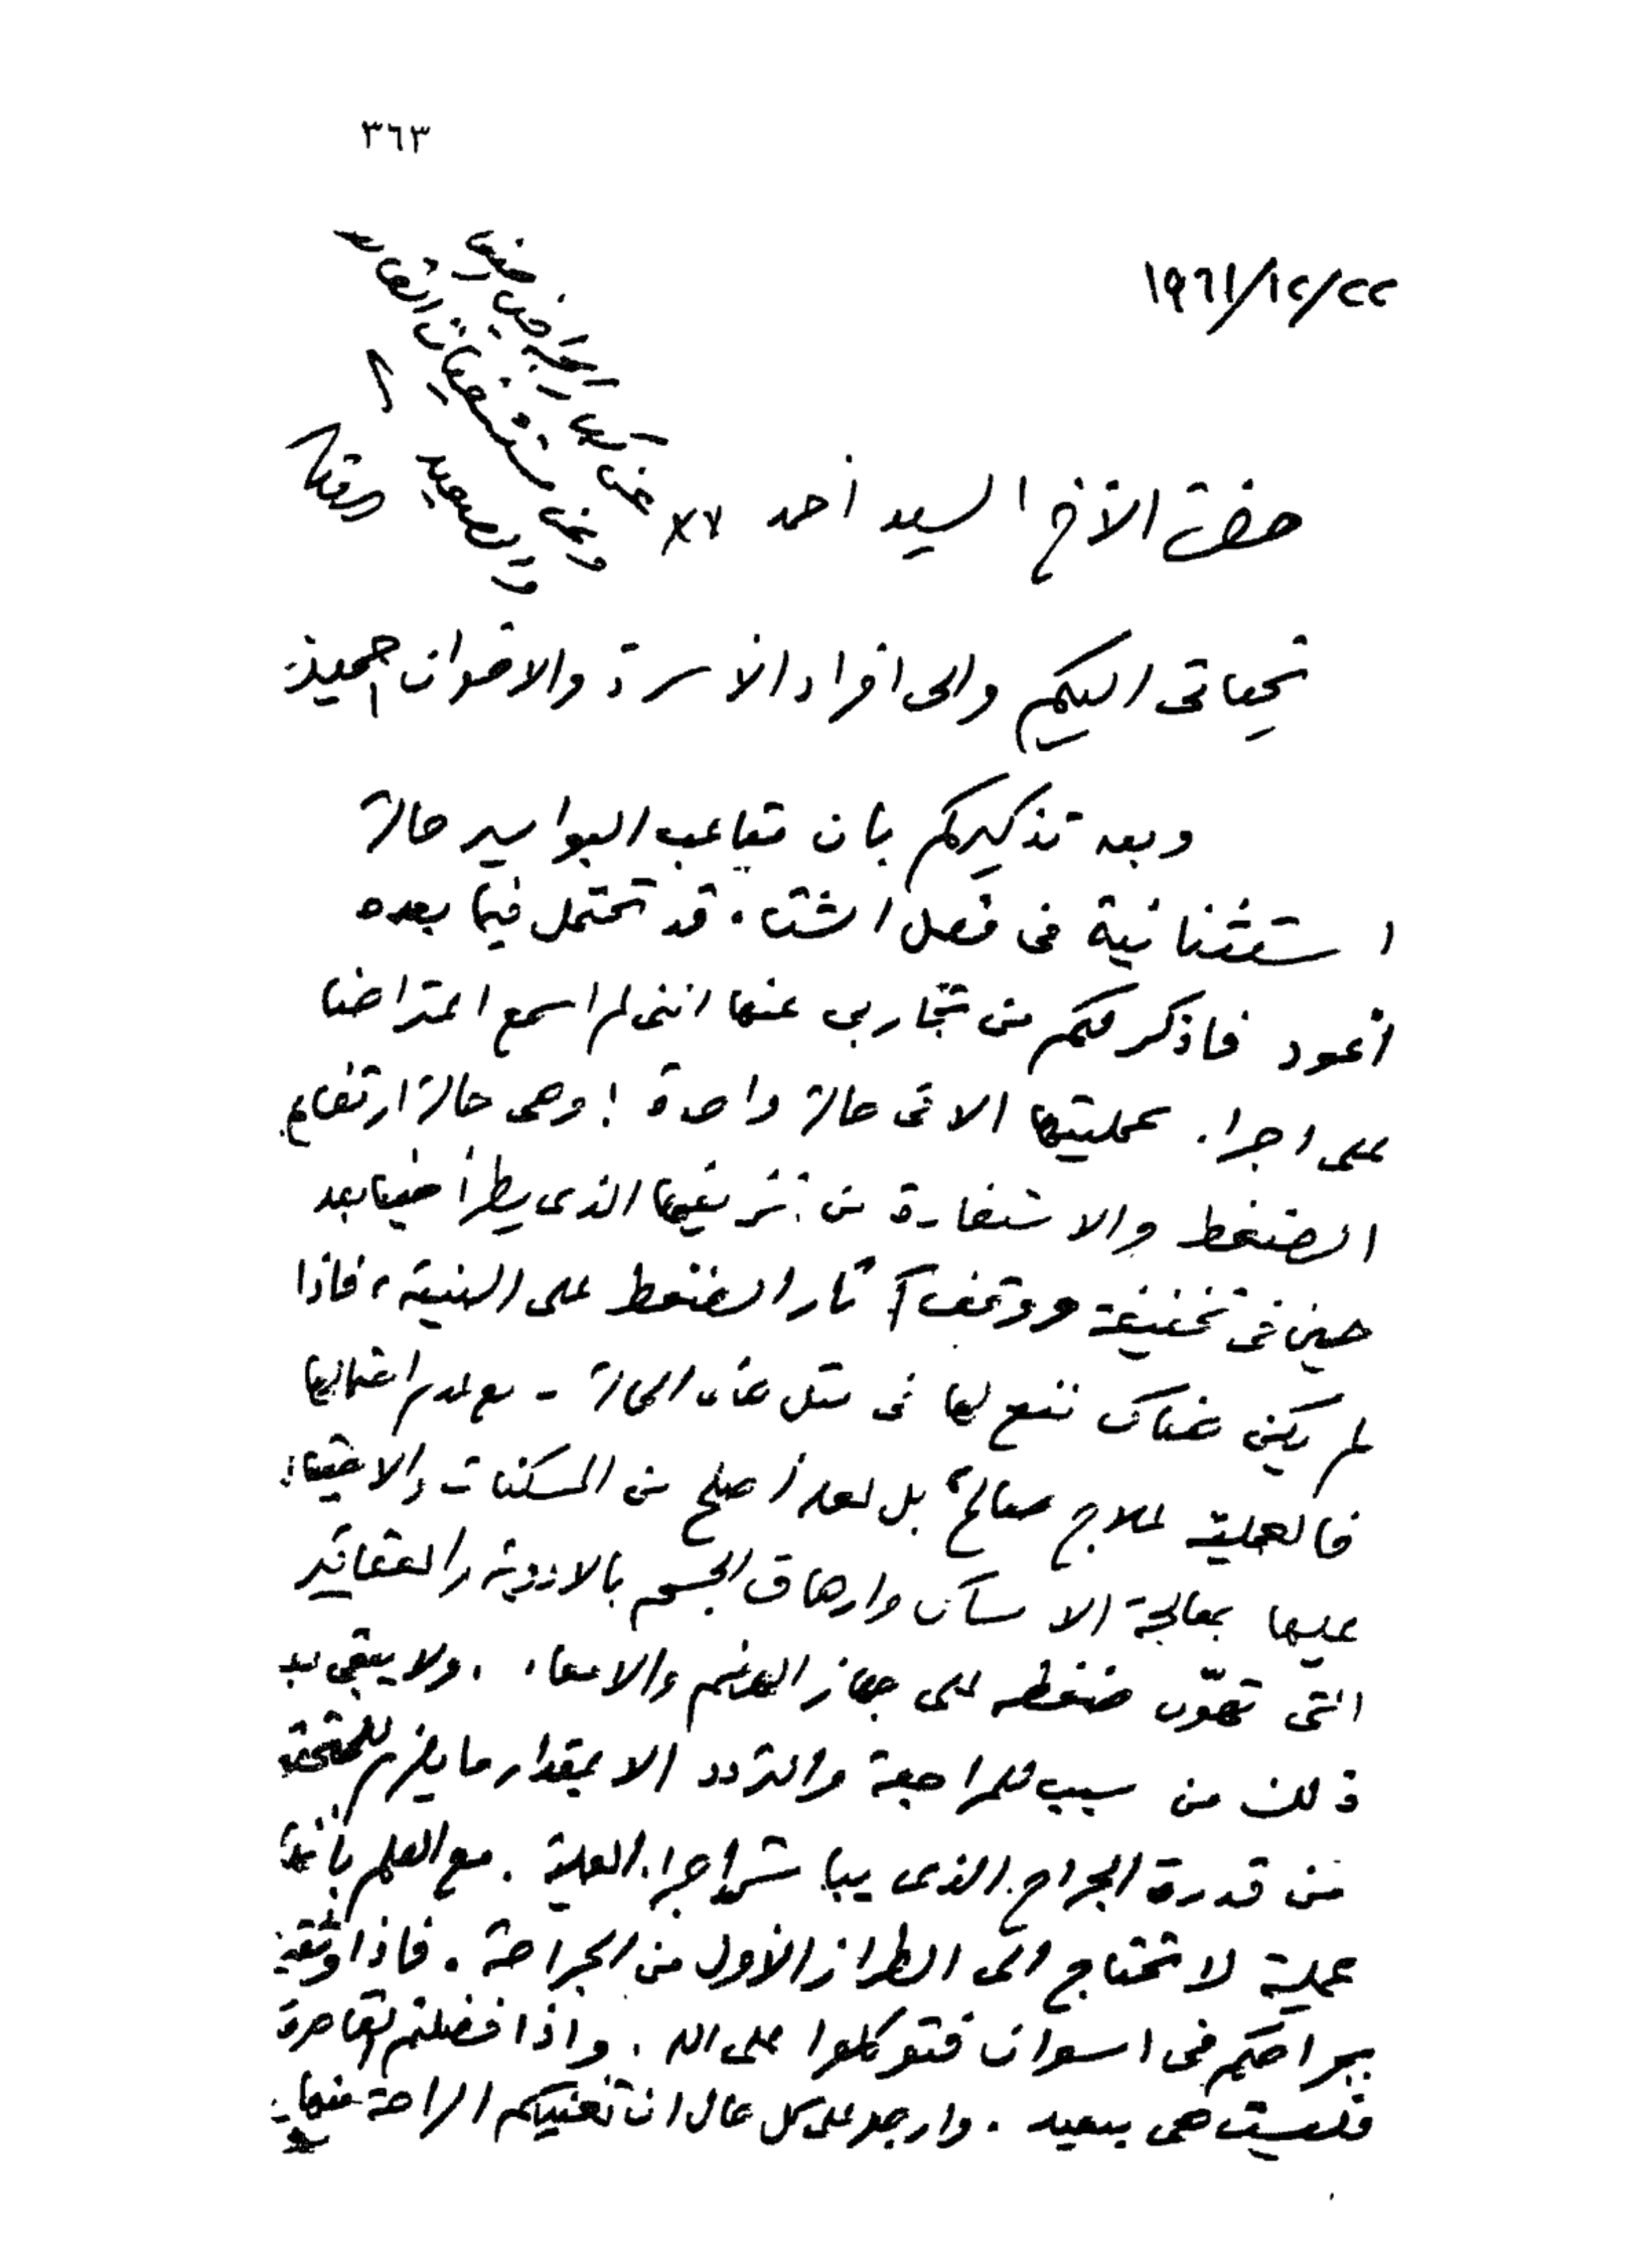 ٣٦٣
١٩٦١/١٢/٢٢
حضرة الأخ السيد أحمد
تحياتى اليكم والى افراد الأسرة والاخوان جميعا
وبعد تذكيركم بان متاعب البواسير حالة
استثنائية فى فصل الشتاء قد تحتمل فيما بعده
أعود فاذكر لكم من تجاربى عنها اننى لم اسمع اعتراضا
على اجراء عمليتها الا فى حالة واحدة ! وهى حالة ارتفاع
الضغط والاستفادة من نزيفها الذى يطرأ حينا بعد
حين فى تخفيفه ووقف آثار الضغط على البنية ، فاذا
لم يكن هناك نفع لها فى مثل هذه الحالة - مع عدم احتمالها
فالعملية علاج صالح بل لعله أصلح من المسكنات والاحتيال
عليها بمعالجة الامساك وارهاق الجسم بالادوية والعقاقير
التى تهوّن ضغطه على جهاز الهضم والامعاء ، ولا يبقى بعد
ذلك من سبب للمراجعة والتردد الا بمقدار ما يلزم للتحقق
من قدرة الجراح الذى يباشر اجراء العملية . مع العلم بأنها
عملية لا تحتاج الى الطراز الأول من الجراحة . فاذا وثقتم
بجراحكم فى اسوان فتوكلوا على الله . واذا فضلتم القاهرة
فليست هى ببعيد . وارجو على كل حال ان تغنيكم الراحة عنها